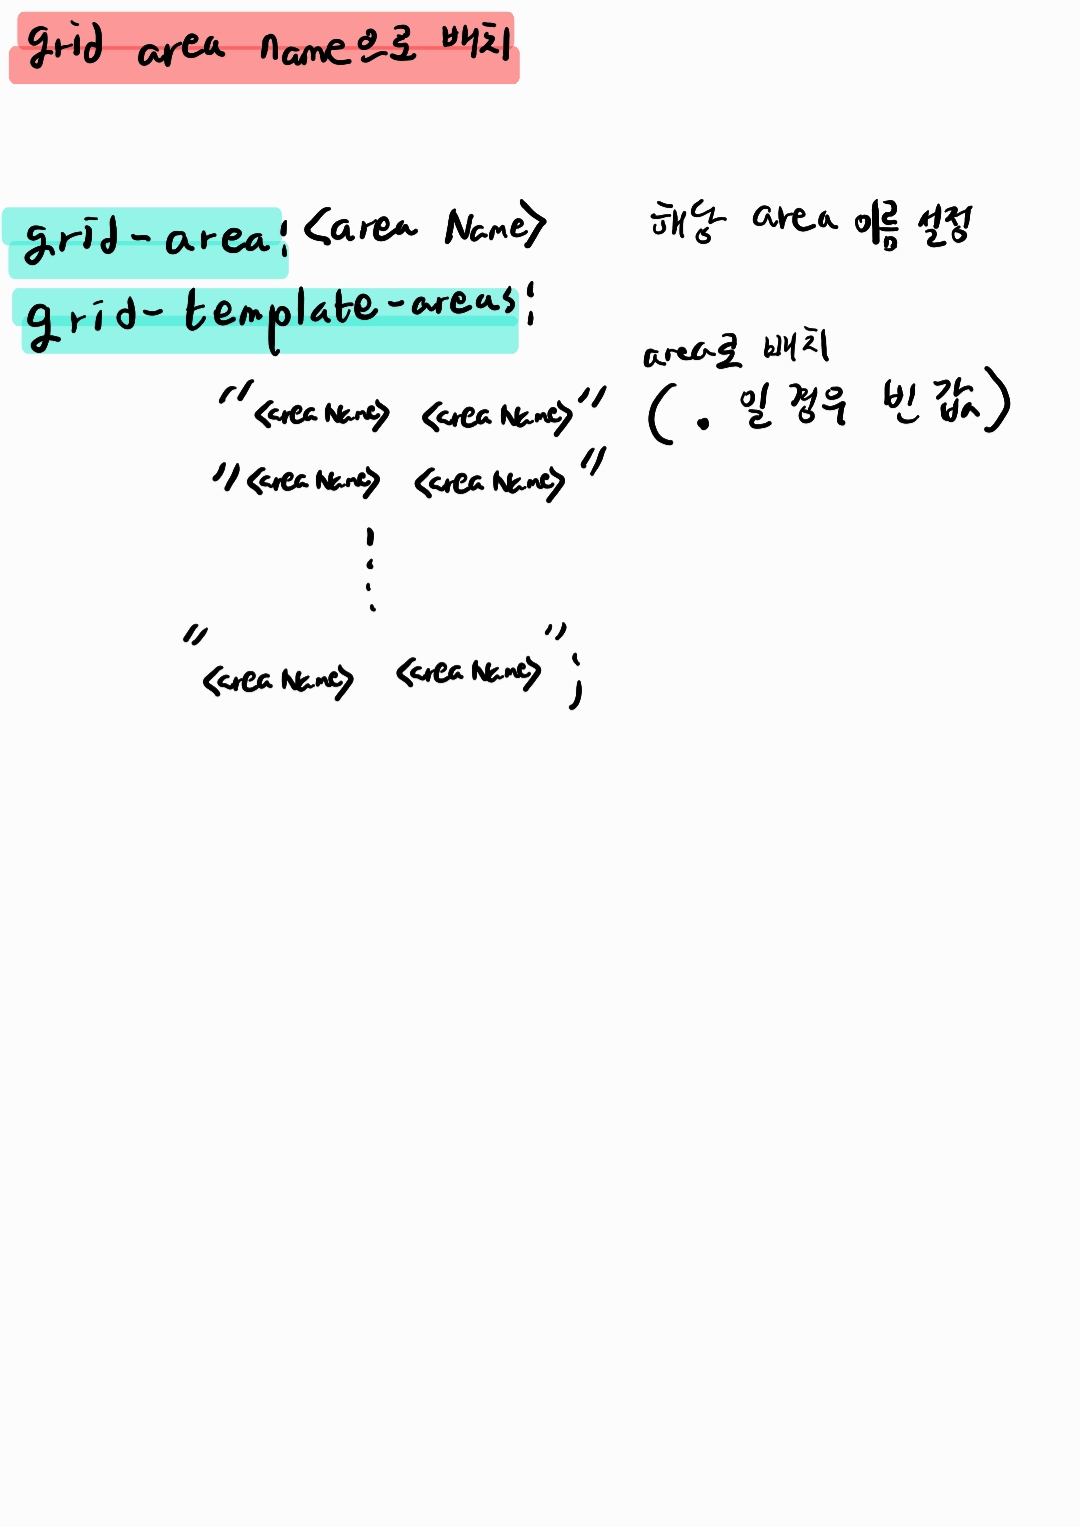 grid area name으로 배치
grid-area: <area Name> 해당 area 이름 설정
grid-template-areas:
area로 배치
"<area Name> <area Name>" (. 일 경우 빈 값)
"<area Name> <area Name>"
⋮
"<area Name> <area Name>";